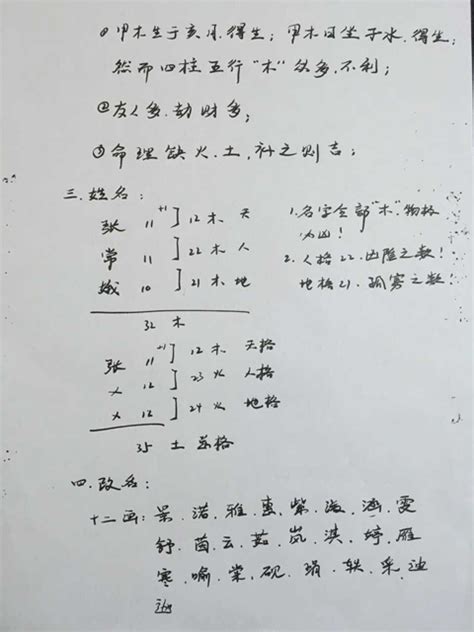 ①甲木生于亥月,得生;甲木日坐子水,得生;
然而四柱五行"木"众多,不利;
②友人多,劫财多;
③命理缺火、土,补之则吉;
三.姓名:
张 11 +1 ] 12 木 天
常 11 ] 22 木 人
娥 10 ] 21 木 地
32 木
1.名字全部"木"格
为凶!
2.人格22.凶险之数!
地格21.孤寡之数!
张 11 +1 ] 12 木 天格
× 12 ] 23 火 人格
× 12 ] 24 火 地格
35 土 总格
四.改名:
十二画:景.诺.雅.惠.紫.涵.雯
舒.茵.云.茹.岚.淇.婷.雁
寒.喻.棠.砚.琄.轶.采.迪